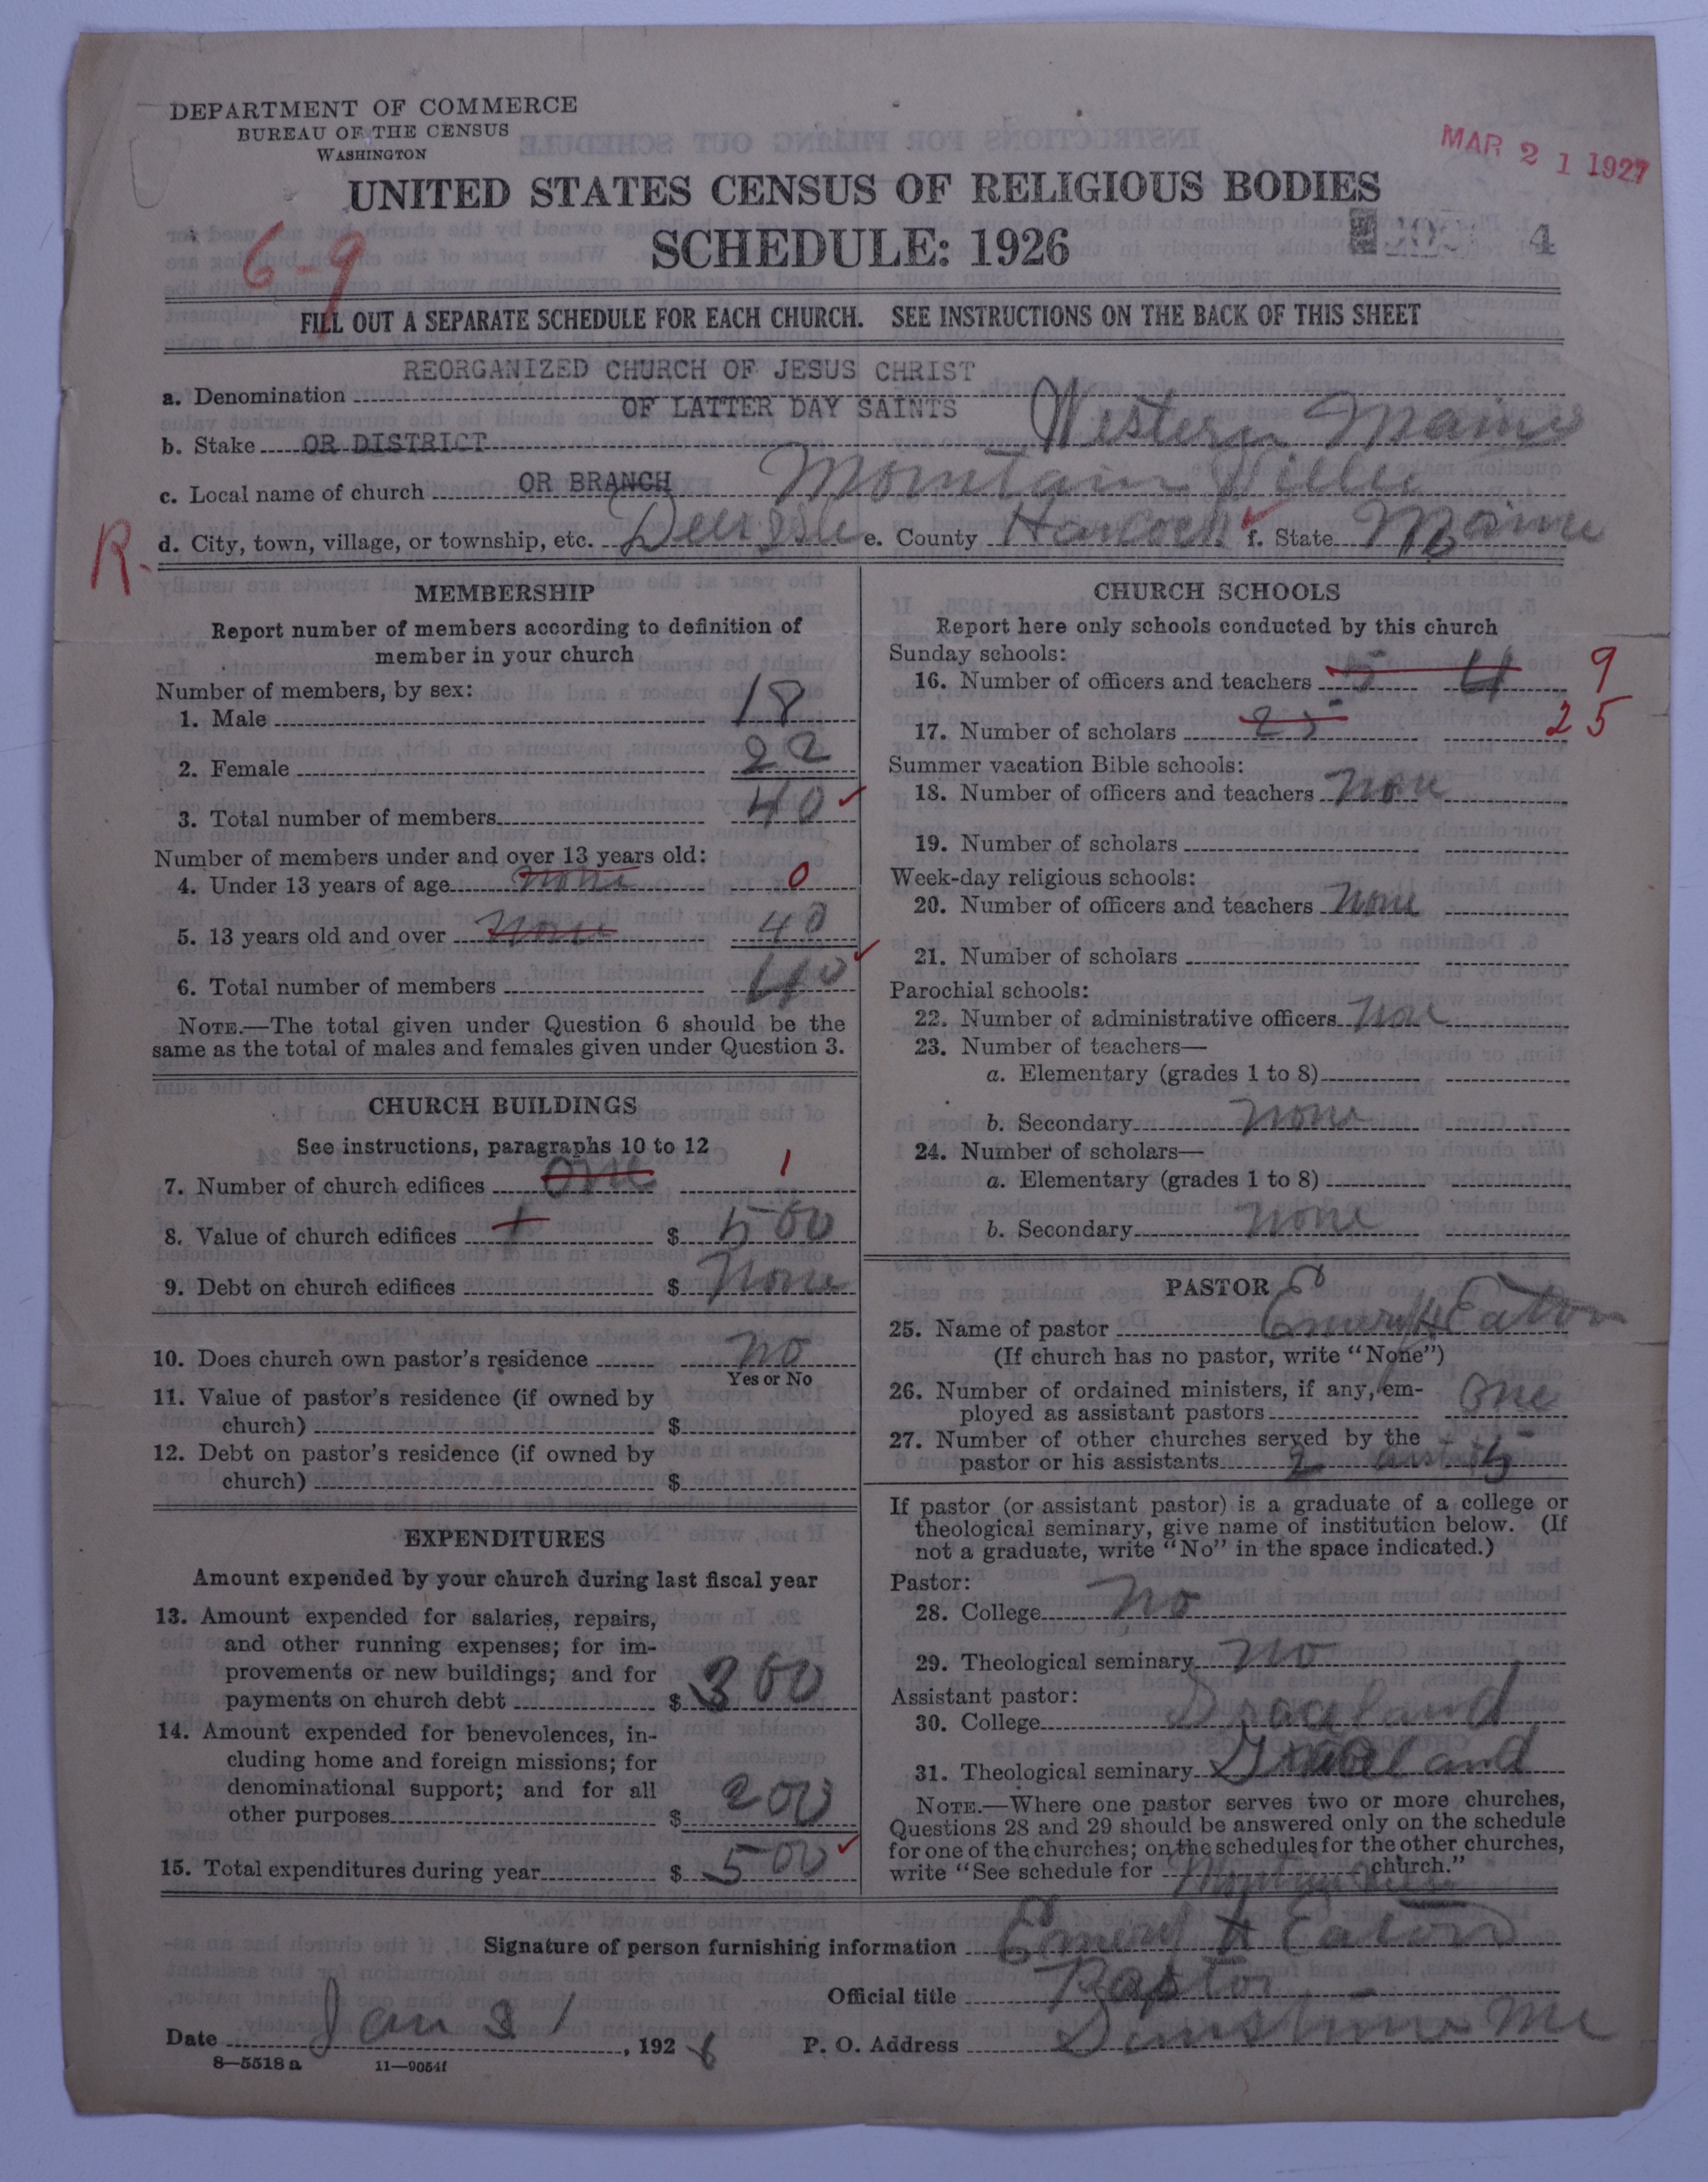 DEPARTMENT OF COMMERCE
BUREAU OF THE CENSUS
WASHINGTON
MAR 21 1927
UNITED STATES CENSUS OF RELIGIOUS BODIES
SCHEDULE: 1926
4
6-9
FILL OUT A SEPARATE SCHEDULE FOR EACH CHURCH. SEE INSTRUCTIONS ON THE BACK OF THIS SHEET
a. Denomination REORGANIZED CHURCH OF JESUS CHRIST
OF LATTER DAY SAINTS
b. Stake OR DISTRICT Western Maine
c. Local name of church OR BRANCH Mountain Ville
R. d. City, town, village, or township, etc. Deer Isle e. County Hancock f. State Maine
MEMBERSHIP
Report number of members according to definition of
member in your church
Number of members, by sex:
1. Male 18
2. Female 22
3. Total number of members 40
Number of members under and over 13 years old:
4. Under 13 years of age None 0
5. 13 years old and over None 40
6. Total number of members 40
NOTE.—The total given under Question 6 should be the
same as the total of males and females given under Question 3.
CHURCH BUILDINGS
See instructions, paragraphs 10 to 12
7. Number of church edifices one 1
8. Value of church edifices 1 $ 500
9. Debt on church edifices $ None
10. Does church own pastor's residence no
Yes or No
11. Value of pastor's residence (if owned by
church) $
12. Debt on pastor's residence (if owned by
church) $
EXPENDITURES
Amount expended by your church during last fiscal year
13. Amount expended for salaries, repairs,
and other running expenses; for im-
provements or new buildings; and for
payments on church debt $ 300
14. Amount expended for benevolences, in-
cluding home and foreign missions; for
denominational support; and for all
other purposes $ 200
15. Total expenditures during year $ 500
CHURCH SCHOOLS
Report here only schools conducted by this church
Sunday schools:
16. Number of officers and teachers 5 4 9
17. Number of scholars 25 25
Summer vacation Bible schools:
18. Number of officers and teachers None
19. Number of scholars
Week-day religious schools:
20. Number of officers and teachers None
21. Number of scholars
Parochial schools:
22. Number of administrative officers None
23. Number of teachers—
a. Elementary (grades 1 to 8)
b. Secondary None
24. Number of scholars—
a. Elementary (grades 1 to 8)
b. Secondary None
PASTOR
25. Name of pastor Emery H Eaton
(If church has no pastor, write "None")
26. Number of ordained ministers, if any, em-
ployed as assistant pastors One
27. Number of other churches served by the
pastor or his assistants 2
If pastor (or assistant pastor) is a graduate of a college or
theological seminary, give name of institution below. (If
not a graduate, write "No" in the space indicated.)
Pastor:
28. College No
29. Theological seminary No
Assistant pastor:
30. College Graceland
31. Theological seminary Graceland
NOTE.—Where one pastor serves two or more churches,
Questions 28 and 29 should be answered only on the schedule
for one of the churches; on the schedules for the other churches,
write "See schedule for Mountain Ville church."
Signature of person furnishing information Emery H Eaton
Official title Pastor
Date Jan 31, 1926 P. O. Address Sunshine Me
8—5518 a 11—9054f